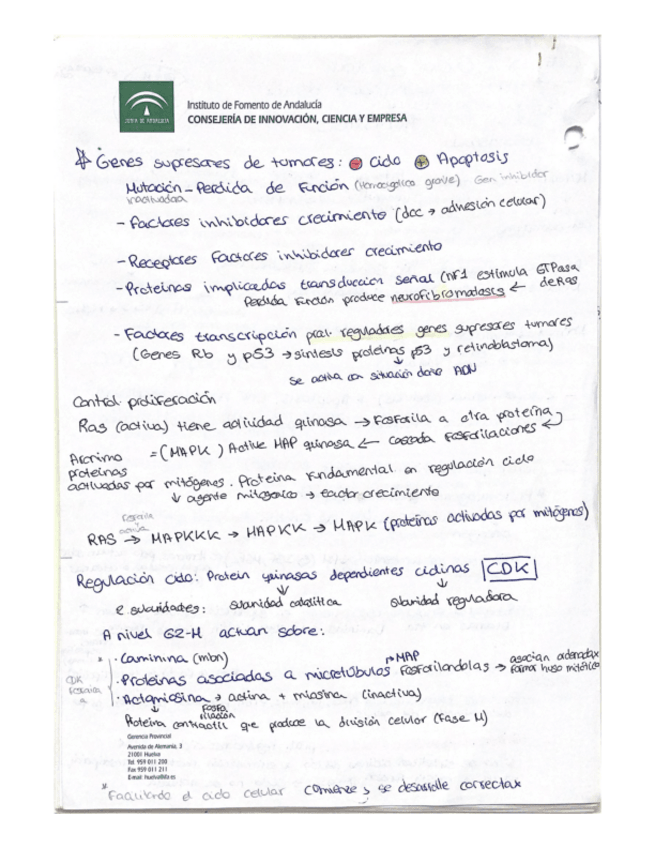 JUNTA DE ANDALUCIA
Instituto de Fomento de Andalucía
CONSEJERÍA DE INNOVACIÓN, CIENCIA Y EMPRESA
Genes supresores de tumores: ⊖ ciclo ⊕ Apoptosis
Mutación - Perdida de Función (Homocigotico grave) Gen inhibidor
inactivadora
- Factores inhibidores crecimiento (dcc → adhesión celular)
- Receptores Factores inhibidores crecimiento
- Proteinas implicadas transducción señal (NF1 estimula GTPasa
Perdida Función produce neurofibromatosis ← de Ras
- Factores transcripción prot. reguladores genes supresores tumores
(Genes Rb y p53 → sintesis proteinas p53 y retinoblastoma)
↓
Se activa con situación daño ADN
Control proliferación
Ras (activa) tiene actividad quinasa → Fosforila a otra proteína
= (MAPK) Active MAP quinasa ← cascada Fosforilaciones ←
Acrónimo
proteinas
activadas por mitógenos. Proteina Fundamental en regulación ciclo
↓ agente mitogenico → factor crecimiento
RAS → MAPKKK → MAPKK → MAPK (proteínas activadas por mitógenos)
Regulación ciclo: Protein quinasas dependientes ciclinas CDK
2 subunidades: subunidad catalitica subunidad reguladora
A nivel G2-M actuan sobre:
· Laminina (mbn)
· Proteinas asociadas a microtúbulos → MAP Fosforilandolas → asocian
forma huso mitótico
CDK
· Actomiosina → actina + miosina (inactiva)
↓ fosforilación
Proteina contractil que produce la división celular (Fase M)
Gerencia Provincial
Avenida de Alemania, 3
21001 Huelva
Tel 959 011 200
Fax 959 011 211
E-mail: huelva@ifa.es
* Facilitando el ciclo celular comience y se desarrolle